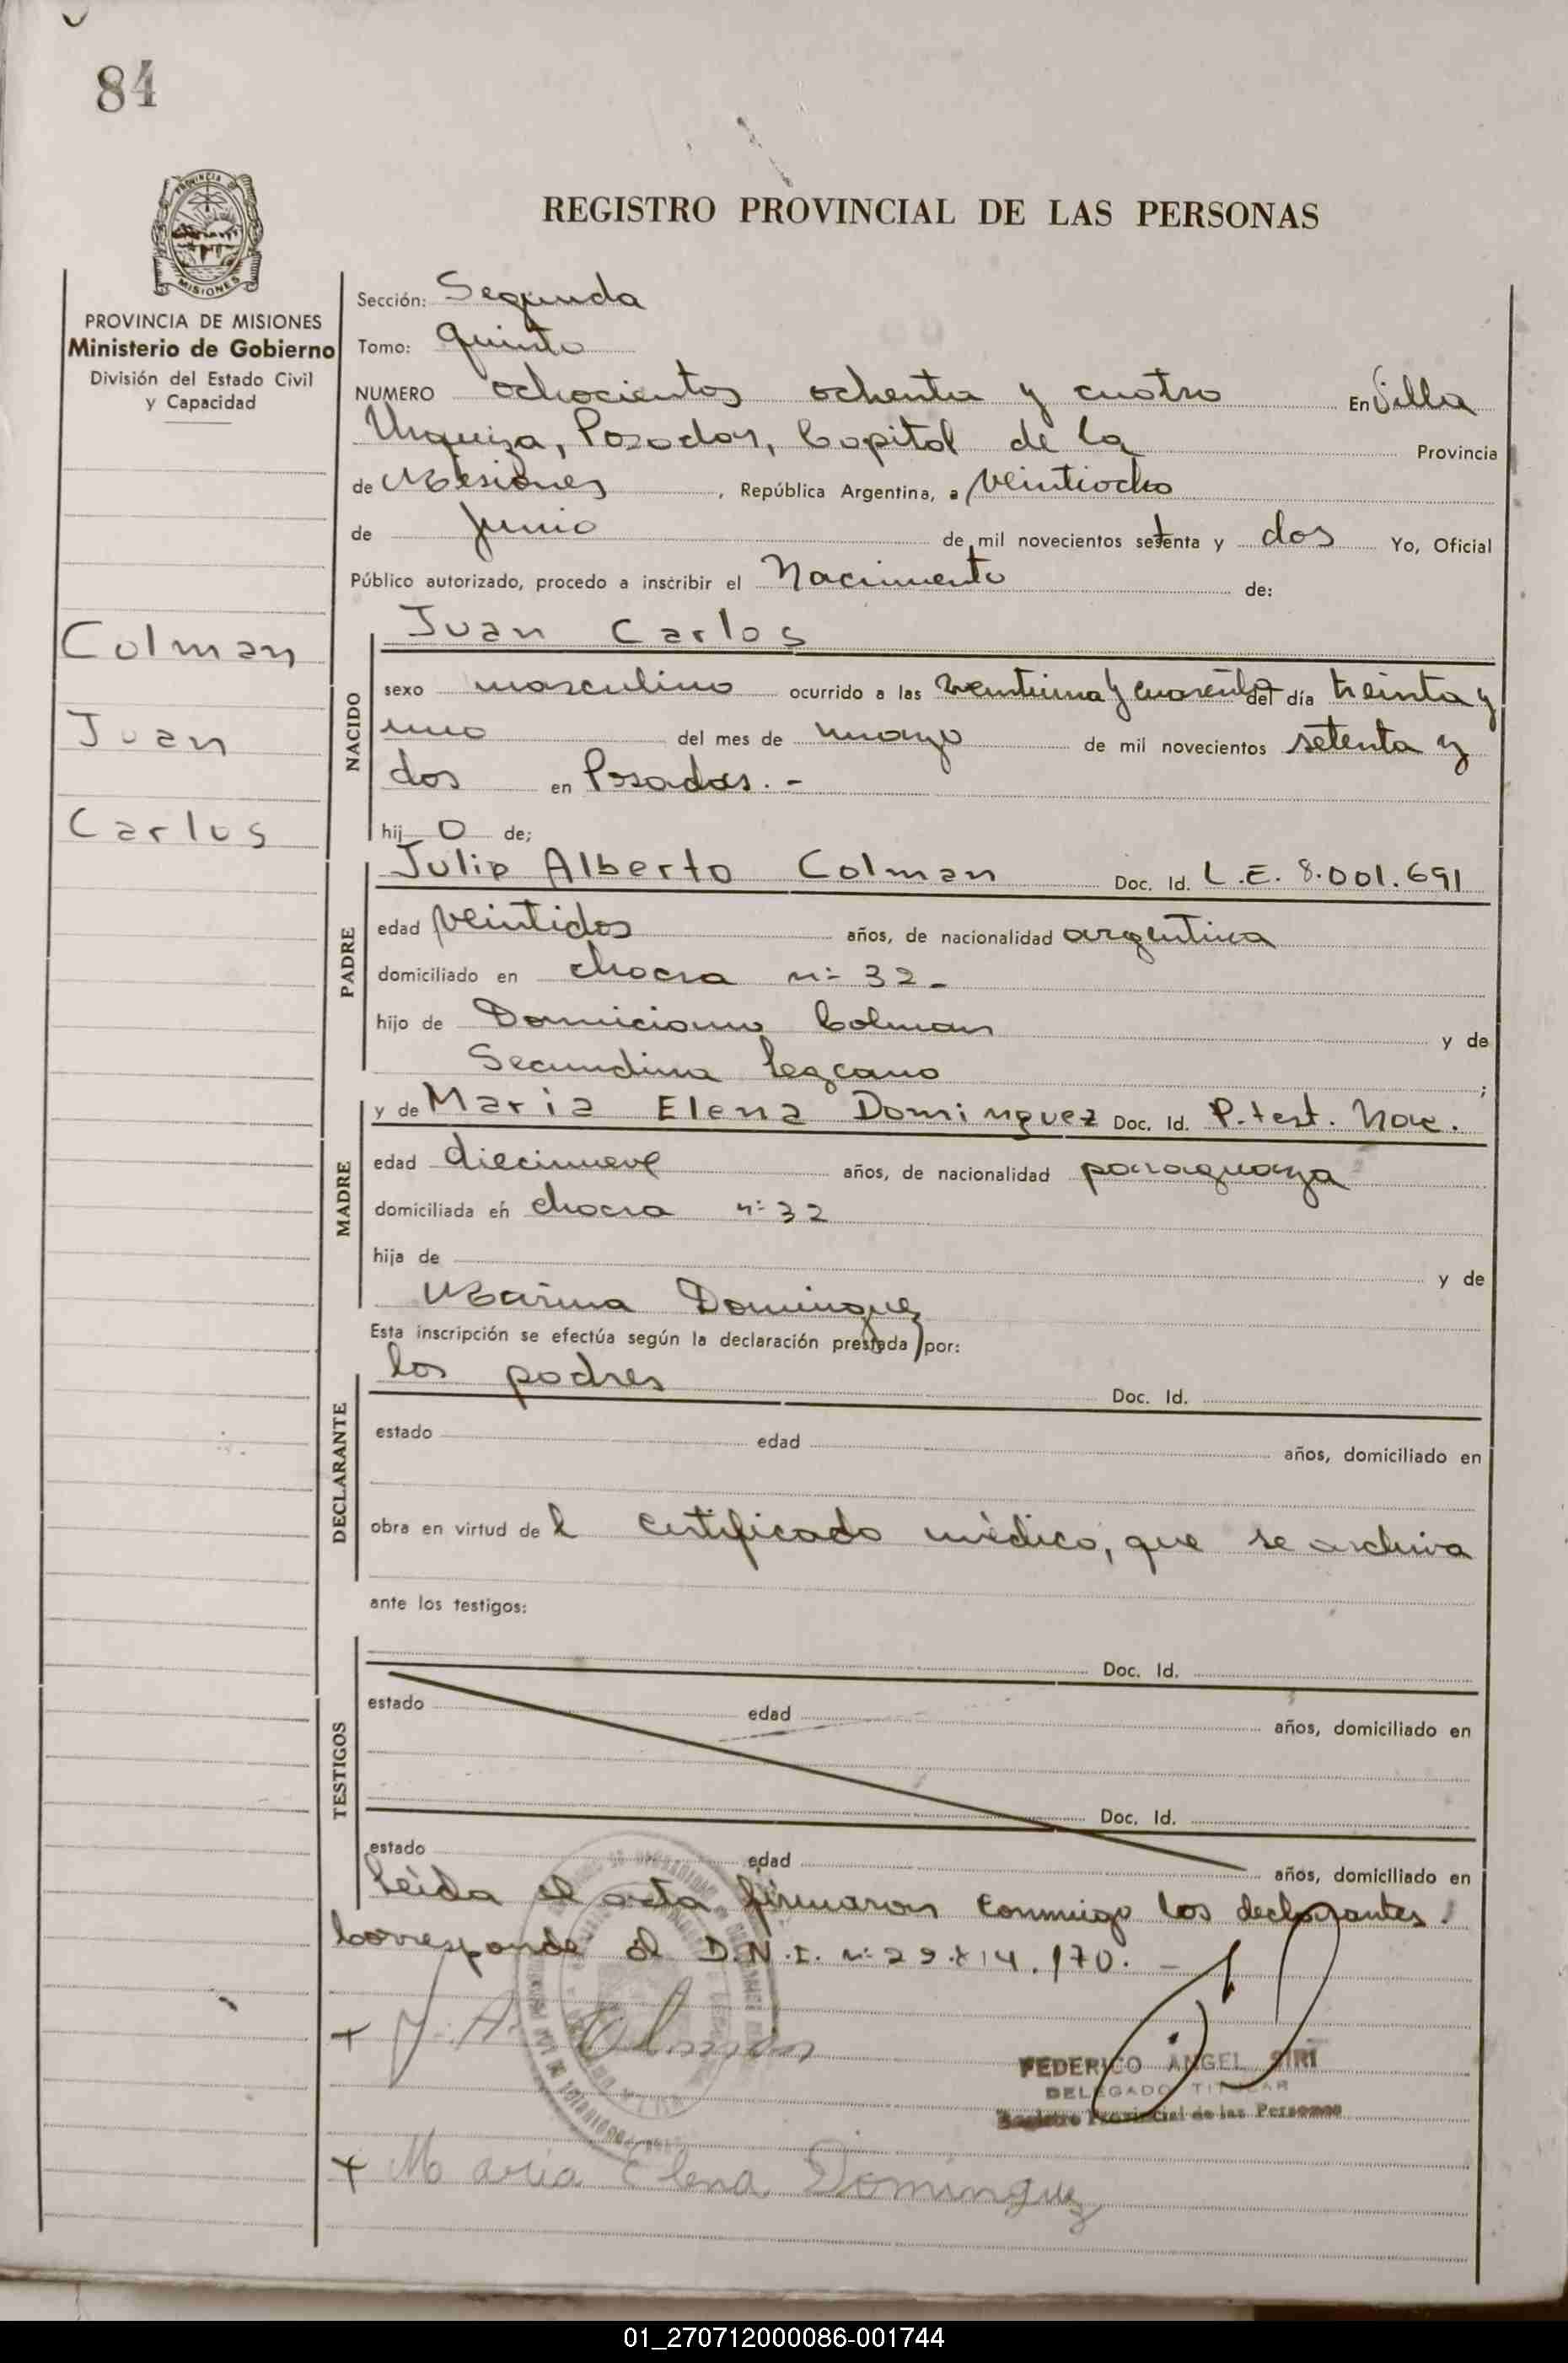 84
PROVINCIA DE MISIONES
REGISTRO PROVINCIAL DE LAS PERSONAS
PROVINCIA DE MISIONES
Ministerio de Gobierno
División del Estado Civil
y Capacidad
Colman
Juan
Carlos
Sección: Segunda
Tomo: quinto
NUMERO ochocientos ochenta y cuatro En Villa
Urquiza, Posadas, Capital de la Provincia
de Misiones, República Argentina, a veintiocho
de junio de mil novecientos setenta y dos Yo, Oficial
Público autorizado, procedo a inscribir el Nacimiento de:
NACIDO
Juan Carlos
sexo masculino ocurrido a las veintiuna y cuarenta del día treinta y
uno del mes de mayo de mil novecientos setenta y
dos en Posadas. -
hij o de;
PADRE
Julio Alberto Colman Doc. Id. L.E. 8.001.691
edad veintidos años, de nacionalidad argentina
domiciliado en chacra n: 32 -
hijo de Domiciano Colman y de
Secundina Lezcano ;
MADRE
y de Maria Elena Dominguez Doc. Id. P. test. Nac.
edad diecinueve años, de nacionalidad paraguaya
domiciliada en chacra n: 32
hija de y de
Marina Dominguez
Esta inscripción se efectúa según la declaración prestada por:
DECLARANTE
los padres Doc. Id.
estado edad años, domiciliado en
obra en virtud de l certificado médico, que se archiva
ante los testigos:
TESTIGOS
Doc. Id.
estado edad años, domiciliado en
Doc. Id.
estado edad años, domiciliado en
Leida el acta firmaron conmigo los declarantes.
Corresponde el D.N.I. n: -
J. A. Colman
FEDERICO ANGEL SIRI
DELEGADO TITULAR
Registro Provincial de las Personas
Maria Elena Dominguez
01_270712000086-001744